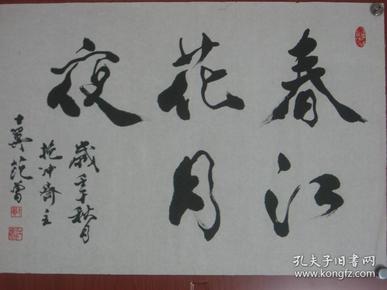 春江
花月
夜
歲壬午秋月
抱冲齋主
十翼范曾
孔夫子旧书网
www.kongfz.com